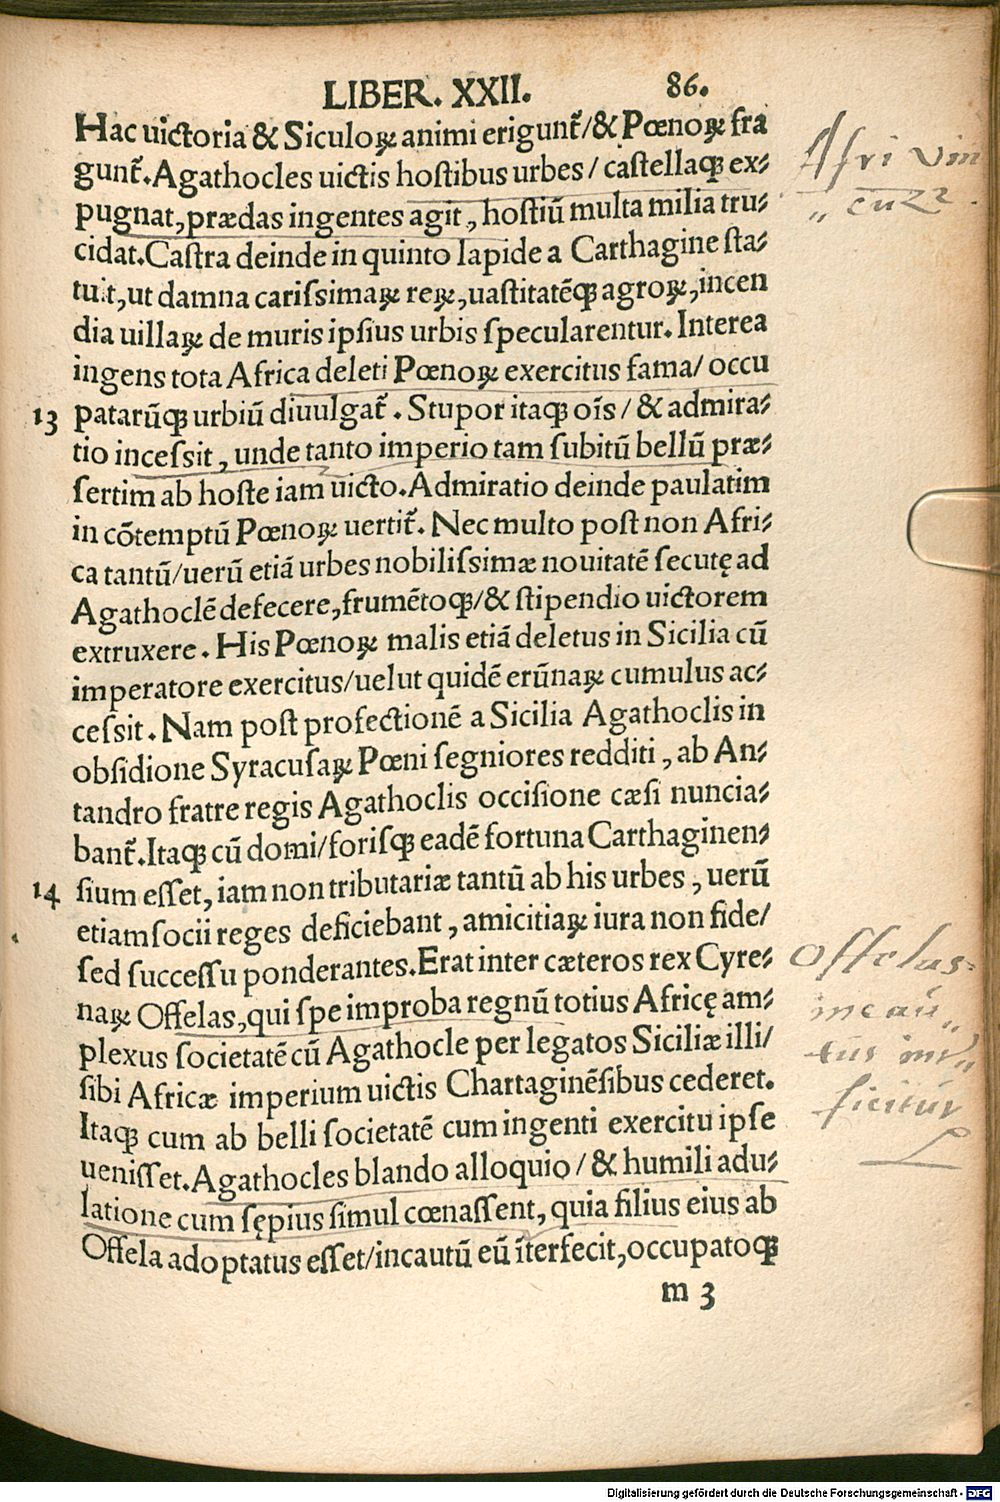 LIBER. XXII. 86.
Hac uictoria & Siculoꝝ animi erigunt᷑/& Pœnoꝝ fra
gunt᷑.Agathocles uictis hoſtibus urbes / caſtellaqꝫ ex⸗
pugnat,prædas ingentes agit, hoſtiū multa milia tru⸗
cidat.Caſtra deinde in quinto lapide a Carthagine ſta⸗
tuit,ut damna cariſsimaꝝ reꝝ,uaſtitatēqꝫ agroꝝ,incen
dia uillaꝝ de muris ipſius urbis ſpecularentur. Interea
ingens tota Africa deleti Pœnoꝝ exercitus fama/ occu
13 patarūqꝫ urbiū diuulgat᷑ . Stupor itaqꝫ oīs / & admira⸗
tio inceſsit, unde tanto imperio tam ſubitū bellū præ⸗
ſertim ab hoſte iam uicto.Admiratio deinde paulatim
in cōtemptū Pœnoꝝ uertit᷑. Nec multo poſt non Afri⸗
ca tantū/uerū etiā urbes nobiliſsimæ nouitatē ſecutę ad
Agathoclē defecere,frumētoqꝫ/& ſtipendio uictorem
extruxere . His Pœnoꝝ malis etiā deletus in Sicilia cū
imperatore exercitus/uelut quidē erūnaꝝ cumulus ac⸗
ceſsit . Nam poſt profectionē a Sicilia Agathoclis in
obſidione Syracuſaꝝ Pœni ſegniores redditi , ab An⸗
tandro fratre regis Agathoclis occiſione cæſi nuncia⸗
bant᷑.Itaqꝫ cū domi/foriſqꝫ eadē fortuna Carthaginen⸗
14 ſium eſſet, iam non tributariæ tantū ab his urbes , uerū
etiam ſocii reges deficiebant , amicitiaꝝ iura non fide/
ſed ſucceſſu ponderantes.Erat inter cæteros rex Cyre⸗
naꝝ Offelas,qui ſpe improba regnū totius Africę am⸗
plexus ſocietatē cū Agathocle per legatos Siciliæ illi/
ſibi Africæ imperium uictis Chartaginēſibus cederet.
Itaqꝫ cum ab belli ſocietatē cum ingenti exercitu ipſe
ueniſſet.Agathocles blando alloquio / & humili adu⸗
latione cum ſępius ſimul cœnaſſent, quia filius eius ab
Offela adoptatus eſſet/incautū eū īterfecit,occupatoqꝫ
m 3
Afri vin
Offelas
incau„
tus int„
ficitur
Digitalisierung gefördert durch die Deutsche Forschungsgemeinschaft - DFG